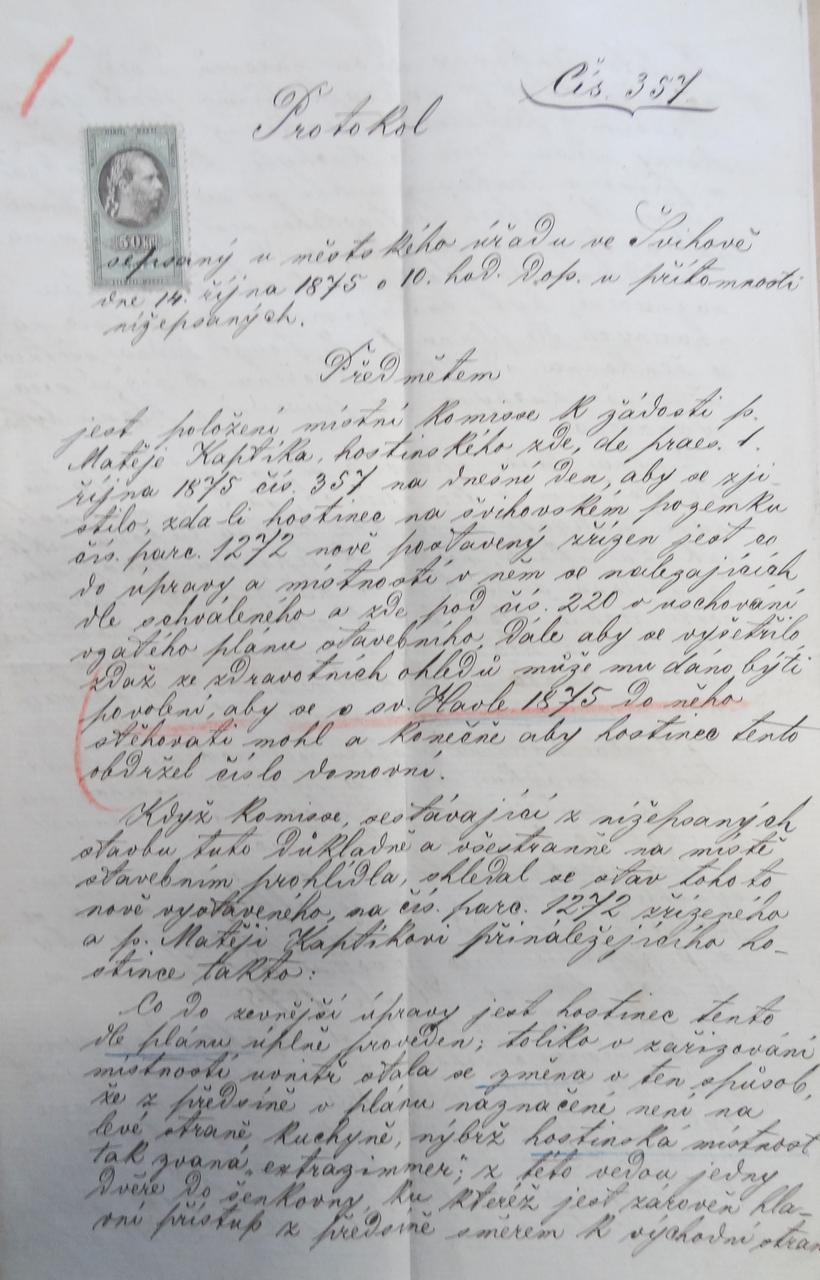 Čís. 357
Protokol
50 kr
sepsaný u městského úřadu ve Švihově
dne 14. října 1875 o 10. hod. dop. u přítomnosti
nížepsaných.
Předmětem
jest položení místní komisse k žádosti p.
Matěje Kaptíka, hostinského zde, de praes. 1.
října 1875 čís. 357 na dnešní den, aby se zji-
stilo, zda li hostinec na švihovském pozemku
čís. parc. 1272 nově postavený zřízen jest co
do úpravy a místností v něm se nalezajících
dle schváleného a zde pod čís. 220 v uschování
vzatého plánu stavebního, dále aby se vyšetřilo,
zdaž ze zdravotních ohledů může mu dáno býti
povolení, aby se o sv. Havle 1875 do něho
stěhovati mohl a konečně aby hostinec tento
obdržel číslo domovní.
Když komisse, sestávající z nížepsaných
stavbu tuto důkladně a všestranně na místě
stavebním prohlídla, shledal se stav tohoto
nově vystaveného, na čís. parc. 1272 zřízeného
a p. Matěji Kaptíkovi přináležejícího ho-
stince takto:
Co do zevnější úpravy jest hostinec tento
dle plánu úplně proveden; toliko v zařizování
místností uvnitř stala se změna v ten spůsob,
že z předsíně v plánu naznačené není na
levé straně kuchyně, nýbrž hostinská místnost
tak zvaná „extrazimmer“; z této vedou jedny
dvéře do šenkovny, ku kteréž jest zároveň hla-
vní přístup z předsíně směrem k východní stran